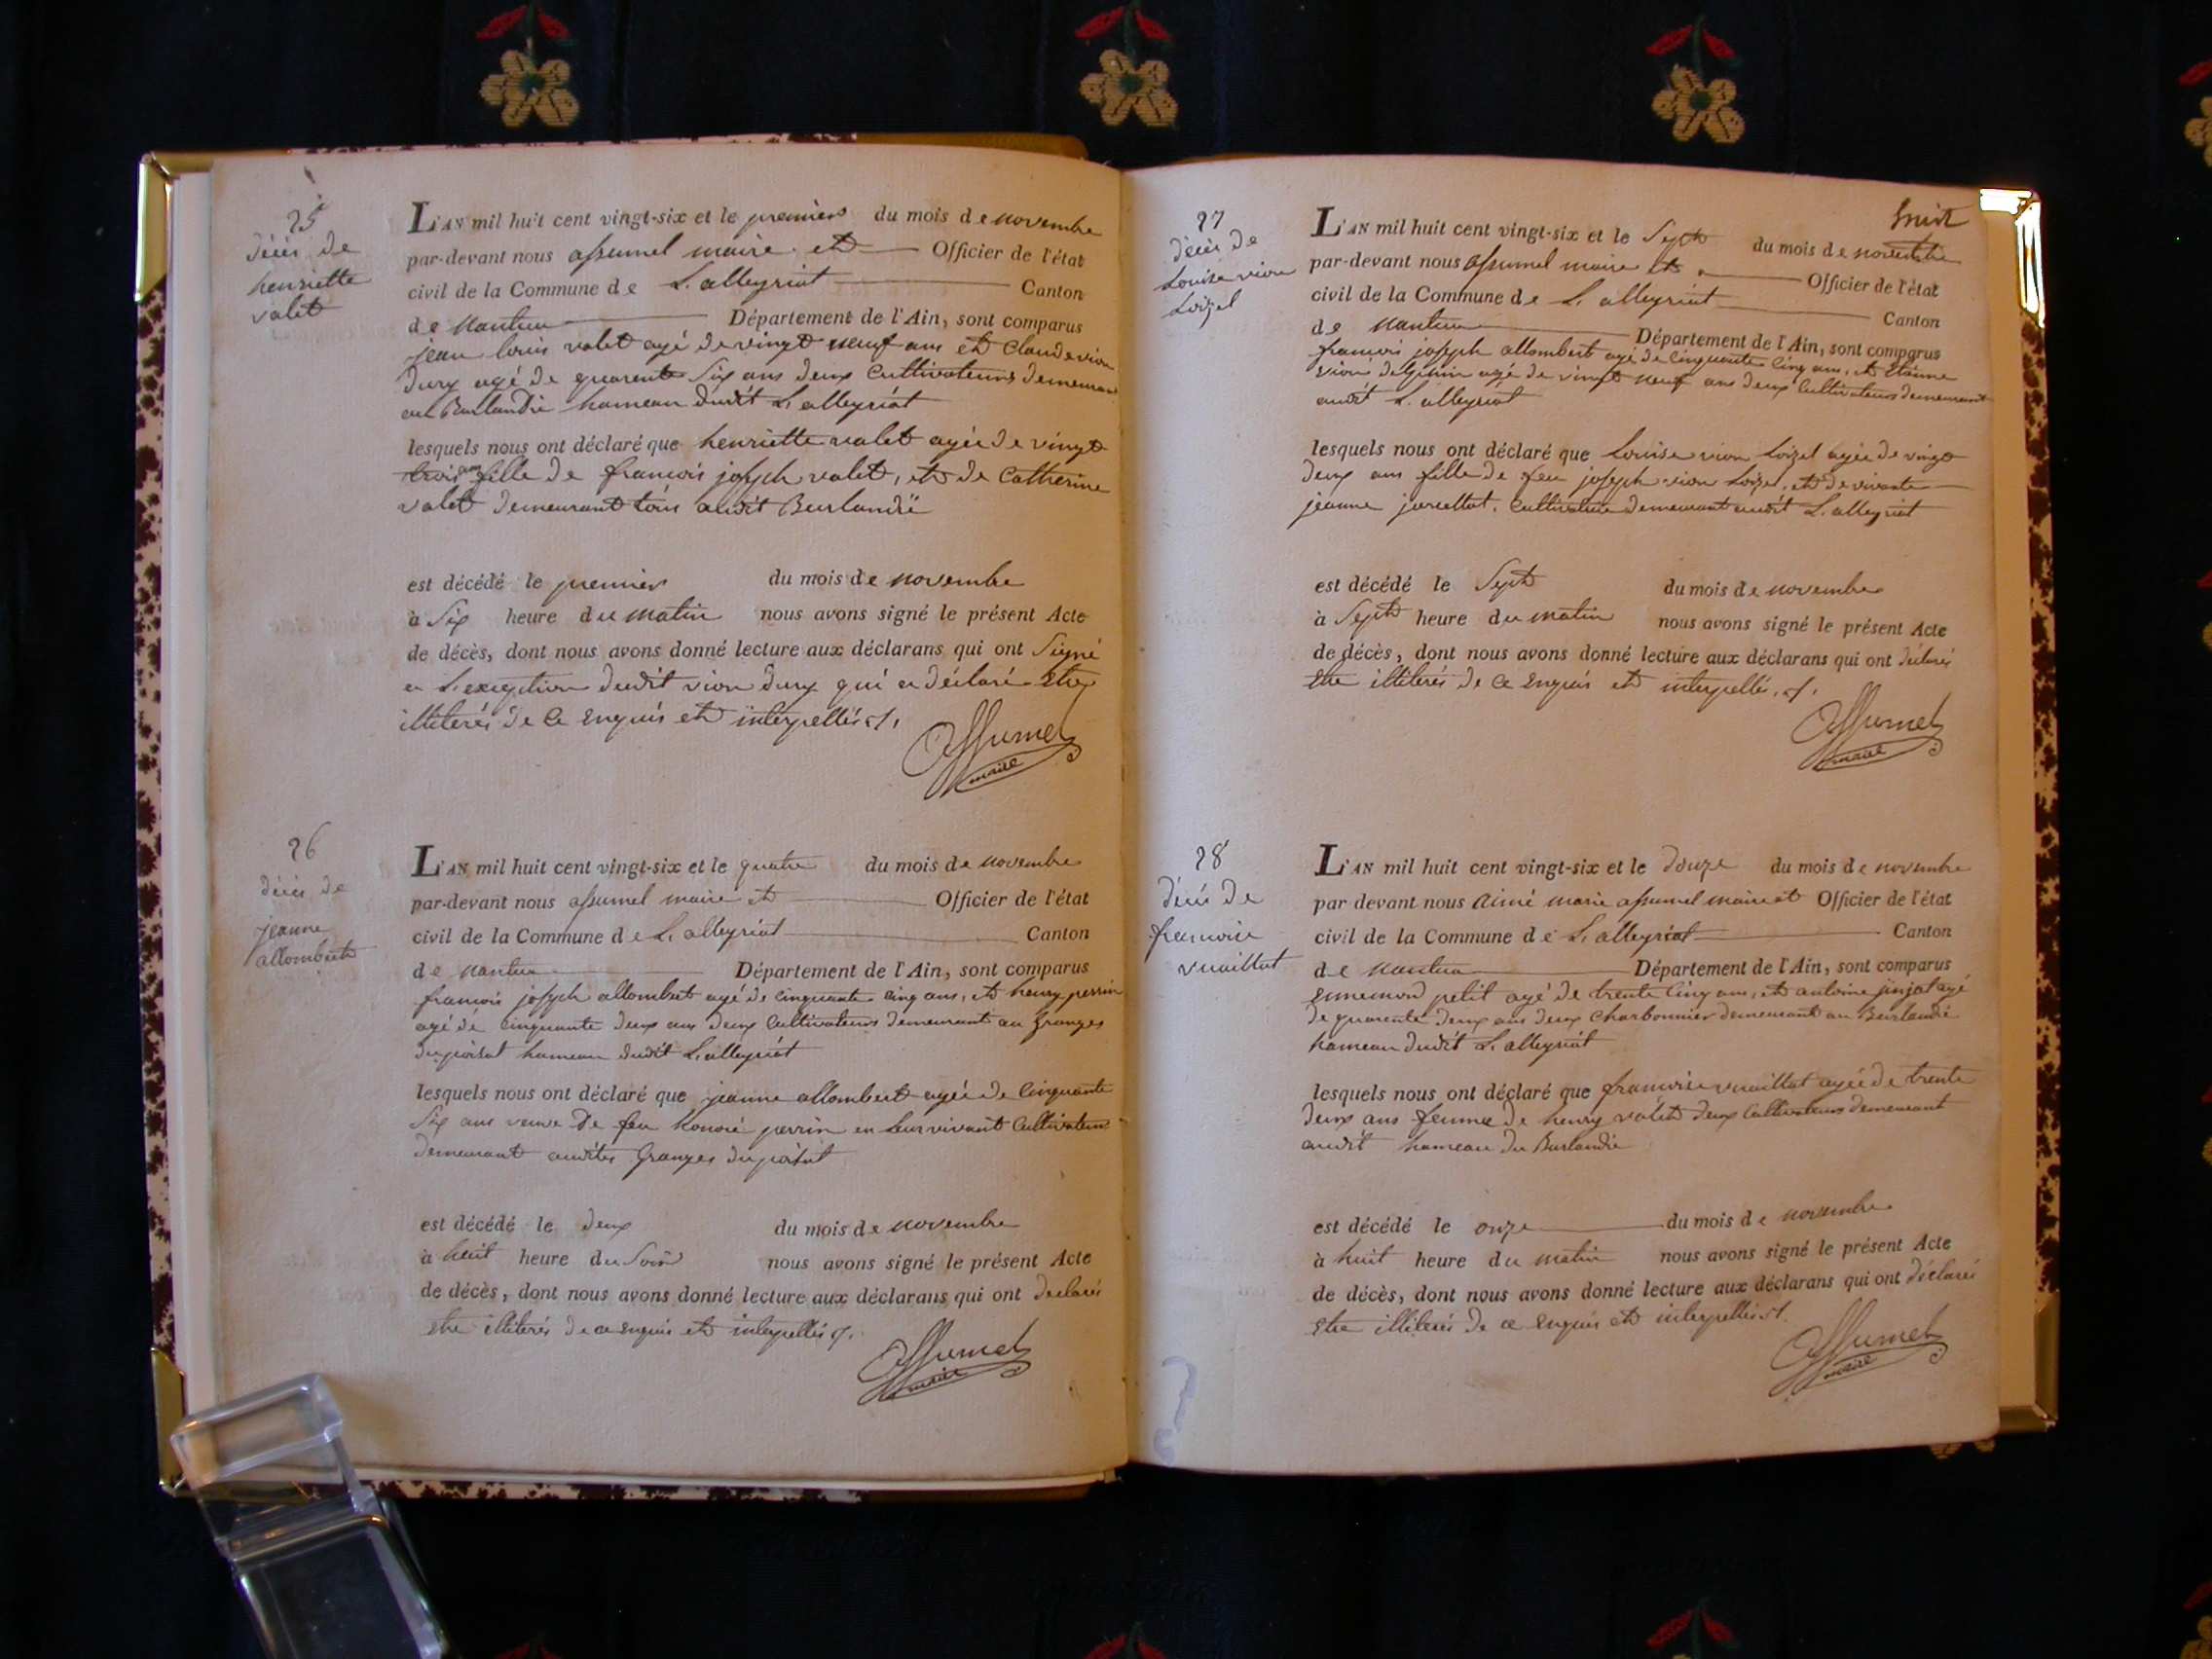 25
décès de
henriette
valet
L'AN mil huit cent vingt-six et le premiers du mois de novembre
par-devant nous assumel maire et Officier de l'état
civil de la Commune de L. alleyriat Canton
de nantua Département de l'Ain, sont comparus
jean louis valet agé de vingt neuf ans et Claude vion
Dury agé de quarente Six ans deux Cultivateurs demeurant
au Burlandié hameau dudit L. alleyriat
lesquels nous ont déclaré que henriette valet agée de vingt
trois ans fille de francois joseph valet, et de Catherine
valet demeurant tous audit Burlandié
est décédé le premier du mois de novembre
à Six heure du matin nous avons signé le présent Acte
de décès, dont nous avons donné lecture aux déclarans qui ont Signé
a L'exception dudit vion Dury qui a déclaré Etre
illiterés de ce enquis et interpellés
Assumel
maire
26
décès de
jeanne
allombert
L'AN mil huit cent vingt-six et le quatre du mois de novembre
par-devant nous assumel maire et Officier de l'état
civil de la Commune de L. alleyriat Canton
de nantua Département de l'Ain, sont comparus
francois joseph allombert agé de cinquante cinq ans, et henry perrin
agé de cinquante deux ans deux Cultivateurs demeurant au Granges
du poisat hameau dudit L. alleyriat
lesquels nous ont déclaré que jeanne allombert agée de Cinquante
Six ans veuve de feu honoré perrin en leur vivant Cultivateur
demeurant audites Granges du poisat
est décédé le deux du mois de novembre
à huit heure du Soir nous avons signé le présent Acte
de décès, dont nous avons donné lecture aux déclarans qui ont declarés
etre illiterés de ce enquis et interpellés
Assumel
maire
huit
27
décès de
Louise vion
Loizel
L'AN mil huit cent vingt-six et le Sept du mois de novembre
par-devant nous assumel maire et Officier de l'état
civil de la Commune de L. alleyriat Canton
de nantua Département de l'Ain, sont comparus
francois joseph allombert agé de Cinquante Cinq ans, et Etienne
vion agé de vingt neuf ans deux Cultivateurs demeurant
audit L. alleyriat
lesquels nous ont déclaré que Louise vion Loizel agée de vingt
deux ans fille de feu joseph vion Loizel, et de vivante
jeanne Cultivatrice demeurant audit L. alleyriat
est décédé le Sept du mois de novembre
à Sept heure du matin nous avons signé le présent Acte
de décès, dont nous avons donné lecture aux déclarans qui ont déclarés
Etre illiterés de ce enquis et interpellés
Assumel
maire
28
décès de
francoise
vuaillat
L'AN mil huit cent vingt-six et le douze du mois de novembre
par devant nous Aimé marie assumel maire et Officier de l'état
civil de la Commune de L. alleyriat Canton
de nantua Département de l'Ain, sont comparus
Ennemond petit agé de trente Cinq ans, et antoine agé
de quarente deux ans deux Charbonnier demeurant au Burlandié
hameau dudit L. alleyriat
lesquels nous ont déclaré que francoise vuaillat agée de trente
deux ans femme de henry valet deux Cultivateurs demeurant
audit hameau du Burlandié
est décédé le onze du mois de novembre
à huit heure du matin nous avons signé le présent Acte
de décès, dont nous avons donné lecture aux déclarans qui ont déclarés
Etre illiterés de ce enquis et interpellés
Assumel
maire